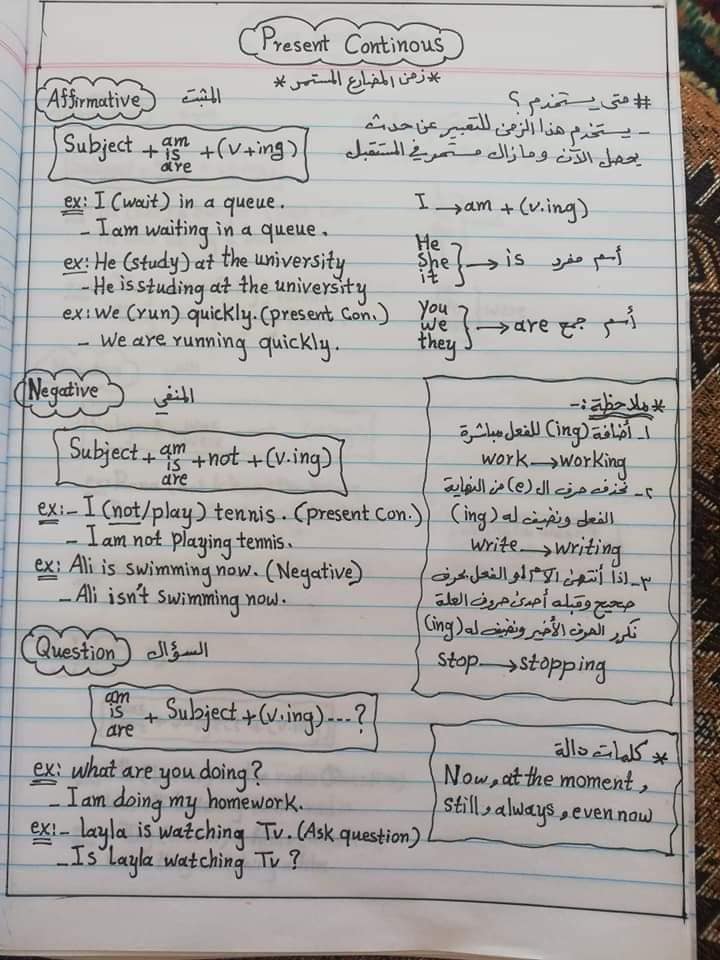 Present Continous
* زمن المضارع المستمر *
Affirmative المثبت
Subject + am is are + (v+ing)
# متى يستخدم ؟
- يستخدم هذا الزمن للتعبير عن حدث
يحصل الآن ومازال مستمر في المستقبل
ex: I (wait) in a queue.
- I am waiting in a queue.
ex: He (study) at the university
- He is studing at the university
ex: we (run) quickly. (present Con.)
- we are running quickly.
I → am + (v.ing)
He
She
it
→ is أسم مفرد
you
we
they
→ are أسم جمع
Negative المنفي
Subject + am is are + not + (v.ing)
ex:- I (not/play) tennis. (present Con.)
- I am not playing tennis.
ex: Ali is swimming now. (Negative)
- Ali isn't swimming now.
* ملاحظة :-
١- أضافة (ing) للفعل مباشرة
work → working
٢- نحذف حرف ال (e) من النهاية
الفعل ونضيف له (ing)
write → writing
٣- اذا أنتهى الاسم او الفعل بحرف
صحيح وقبله أحدى حروف العلة
نكرر الحرف الأخير ونضيف له (ing)
stop → stopping
Question السؤال
am is are + Subject + (v.ing) ---?
ex: what are you doing?
- I am doing my homework.
ex:- layla is watching Tv. (Ask question)
- Is layla watching Tv ?
* كلمات دالة
Now, at the moment,
still, always, even now